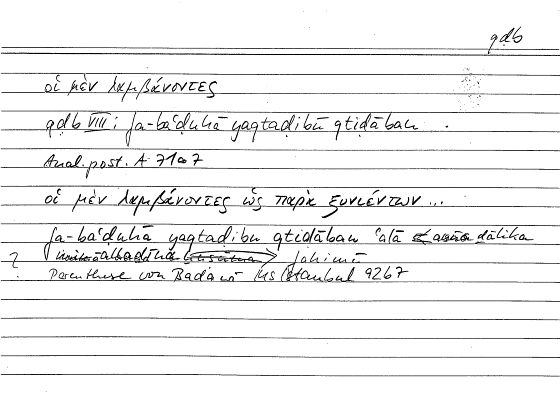 qḍb
οἱ μὲν λαμβάνοντες
qḍb VIII: fa-ba‘ḍuhā yaqtaḍibu qtiḍāban .
Anal. post. A 71a7
οἱ μὲν λαμβάνοντες ὡς παρὰ ξυνιέντων...
fa-ba‘ḍuhā yaqtaḍibu qtiḍāban ‘alā ḏālika
? allaḏīna fahimū
Parenthese von Badawī Hs Istanbul 9267